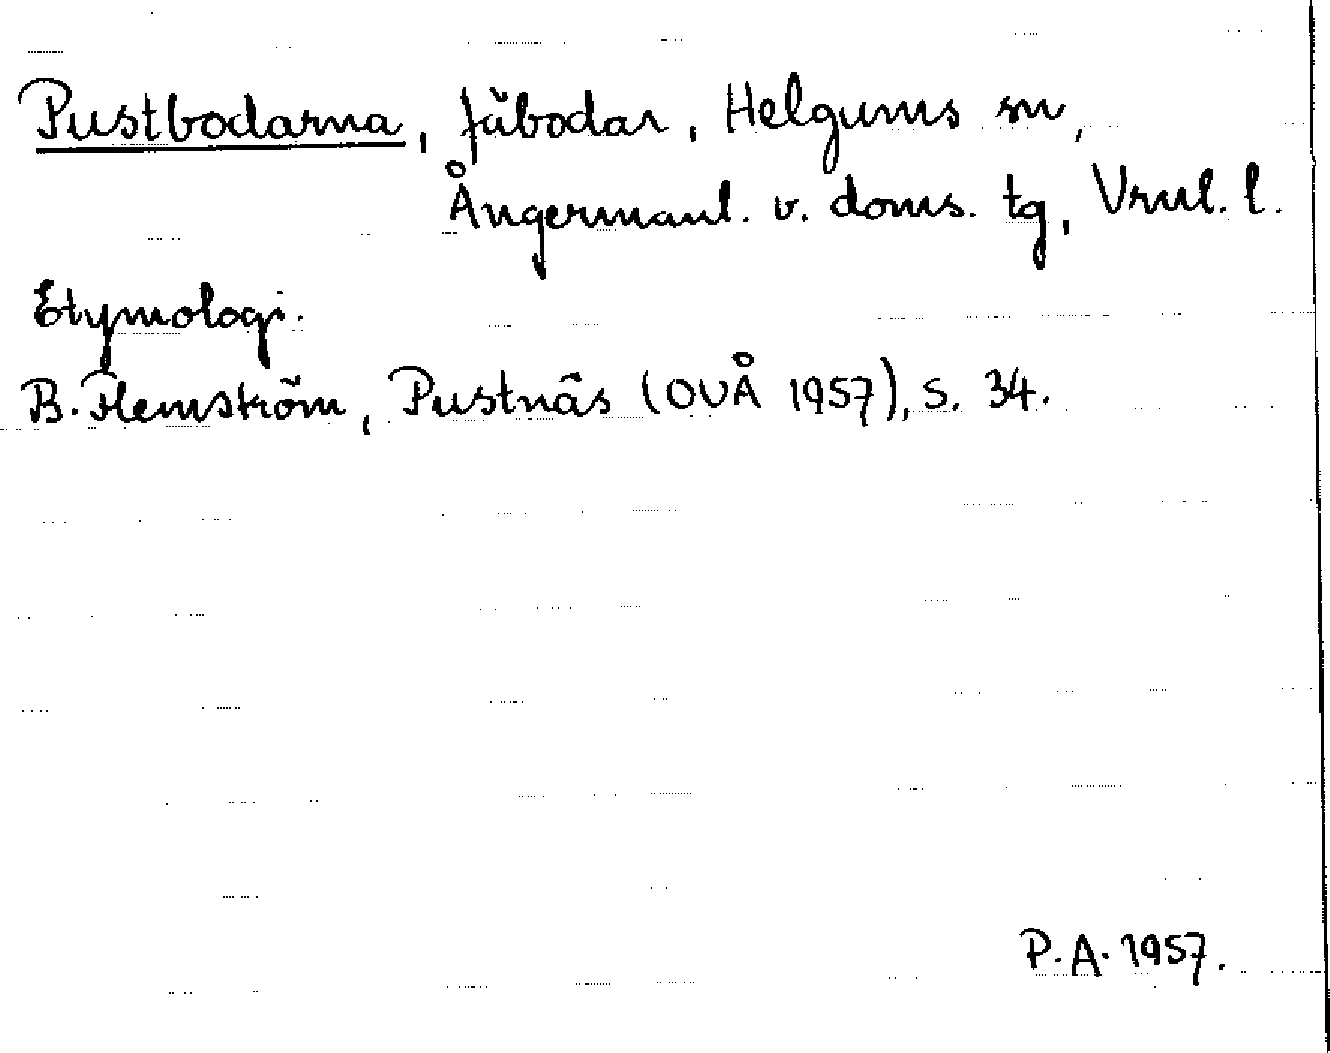 Pustbodarna, fäbodar, Helgums sn,
Ångermanl. v. doms. tg, Vrnl. l.
Etymologi.
B. Flemström, Pustnäs (OUÅ 1957), s. 34.
P. A. 1957.